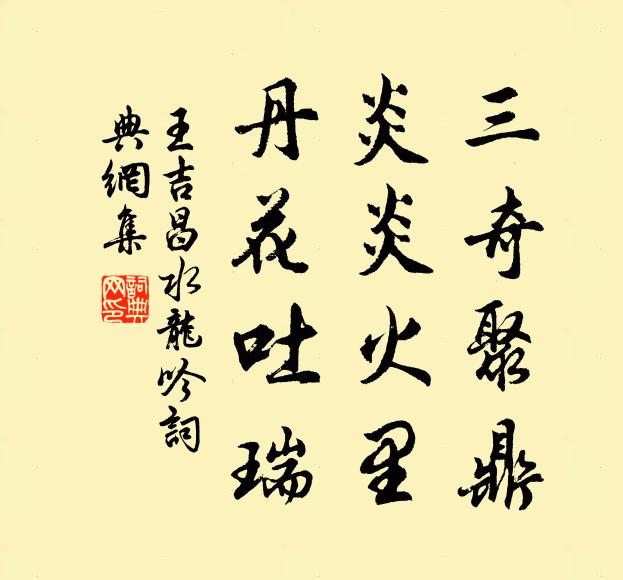 三奇聚鼎
炎炎火里
丹花吐瑞
王吉昌水龍吟詞
典網集
詞典
网印